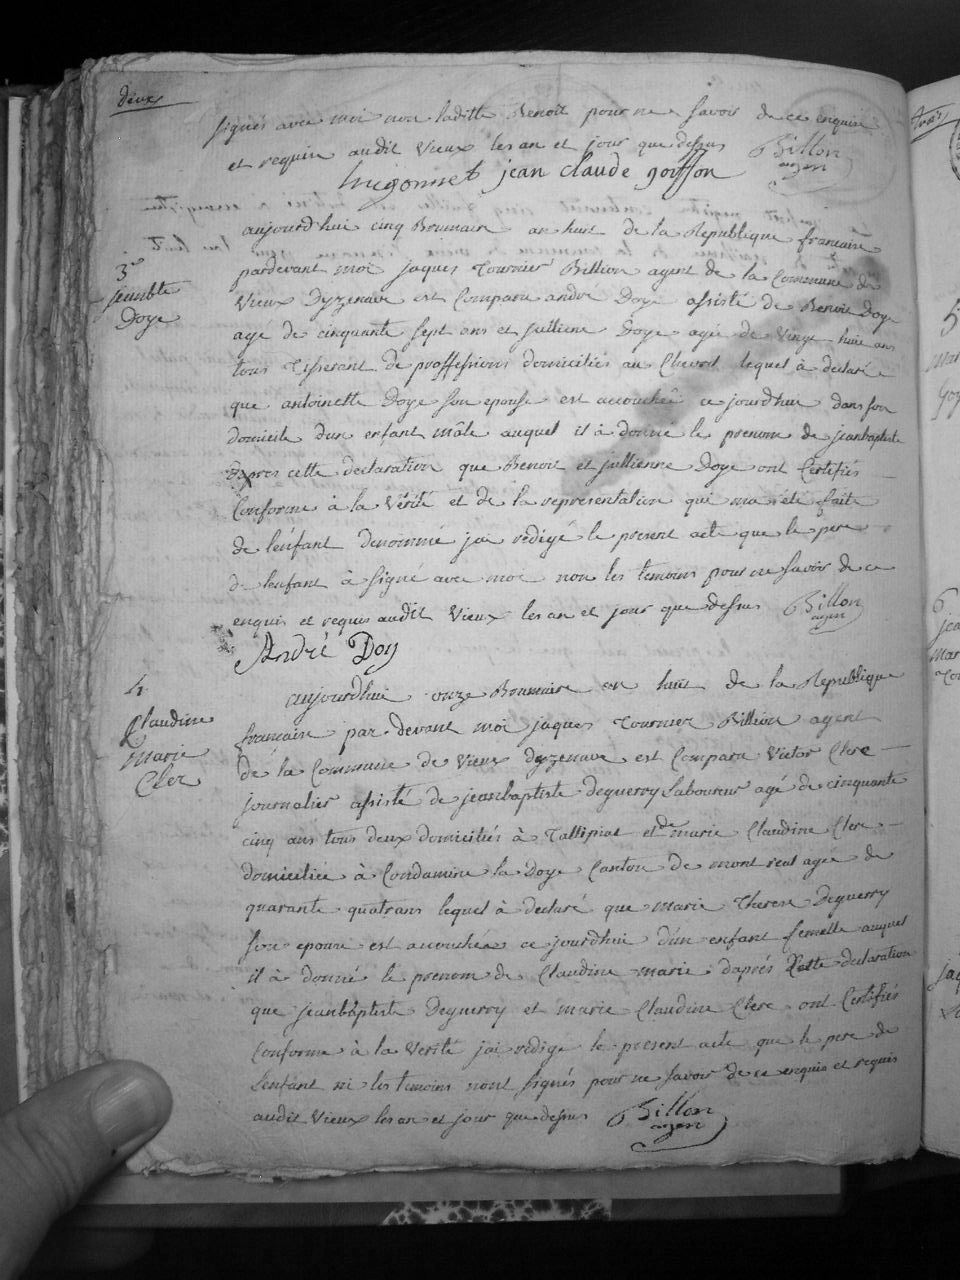 deux
signés avec moi non laditte Benoit pour ne savoir de ce enquise
et requise audit Vieux les an et jour que dessus Billion
agent
hugonnet jean claude goiffon
aujourd'hui cinq Brumaire an huit de la Republique francaise
3e
semblte
Doye
pardevant moi jaques Tournier Billion agent de la Commune de
Vieux Dyzenave est Comparu andré Doye assisté de Benoit Doye
agé de cinquante sept ans et jullienne Doye agée de Vingt huit ans
tous Tisserant de proffessions domiciliés au Chevril lequel à declaré
que antoinette Doye son epouse est accouchée ce jourdhui dans son
domicile d'un enfant mâle auquel il à donné le prenom de jeanbaptiste
Dapres cette declaration que Benoit et jullienne Doye ont Certifiés
Conforme à la Vérité et de la representation qui ma été faite
de l'enfant denommé jai rédigé le present acte que le pere
de l'enfant à signé avec moi non les temoins pour ne savoir de ce
enquis et requis audit Vieux les an et jour que dessus Billon
agent
André Doy
4
Claudine
Marie
Cler
aujourdhui onze Brumaire an huit de la Republique
francaise par devant moi jaques Tournier Billion agent
de la Commune de Vieux dyzenave est Comparu Victor Clerc
journalier assisté de jeanbaptiste Deguerry Laboureur agé de cinquante
cinq ans tous deux domiciliés à Tallipiat et de marie Claudine Clerc
domiciliée à Condamine la Doye Canton de mont real agée de
quarante quatrans lequel à declaré que Marie Therese Deguerry
son epouse est accouchée ce jourdhui d'un enfant femelle auquel
il à donné le prenom de Claudine marie d'après Cette declaration
que jeanbaptiste Deguerry et marie Claudine Clerc ont Certifiés
Conforme à la Verité jai rédigé le present acte que le pere de
l'enfant ni les temoins nont signés pour ne savoir de ce enquis et requis
audit Vieux les an et jour que dessus Billon
agent